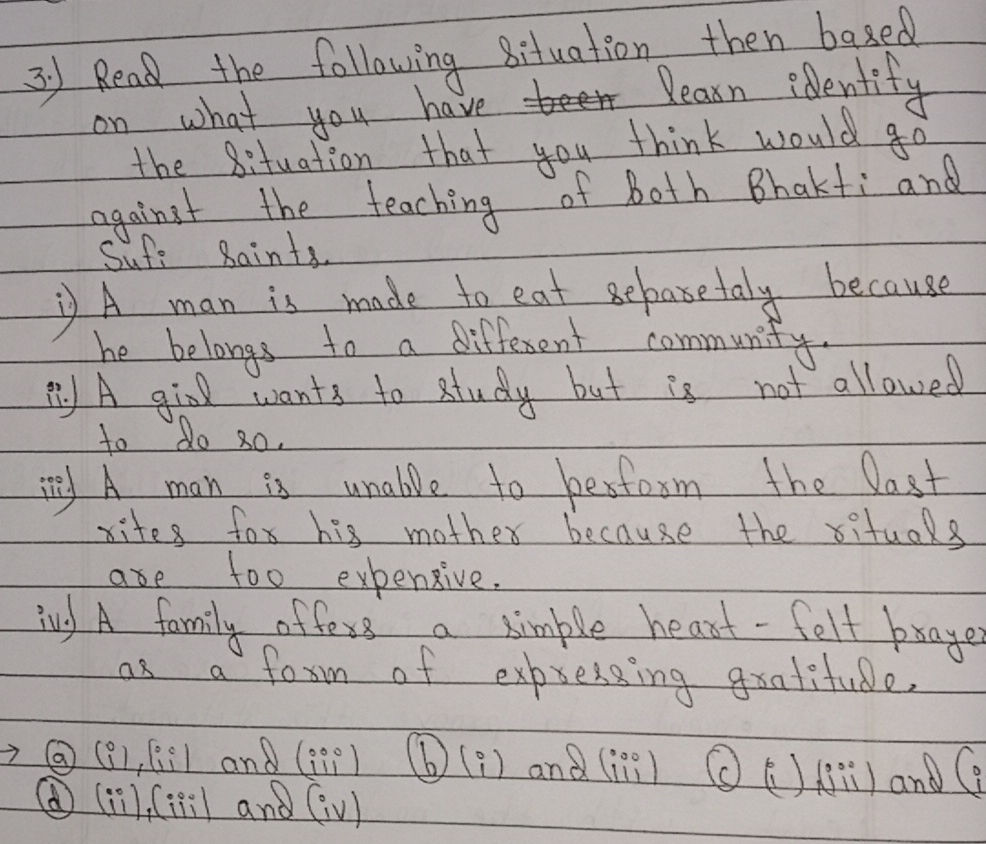 3.) Read the following situation then based
on what you have been learn identify
the situation that you think would go
against the teaching of both Bhakti and
Sufi saints.
i) A man is made to eat separetaly because
he belongs to a different community.
ii.) A girl wants to study but is not allowed
to do so.
iii) A man is unable to perform the last
rites for his mother because the rituals
are too expensive.
iv.) A family offers a simple heart - felt prayer
as a form of expressing gratitude.
→ (a) (i), (ii) and (iii) (b) (i) and (iii) (c) (i), (iii) and
(d) (ii), (iii) and (iv)